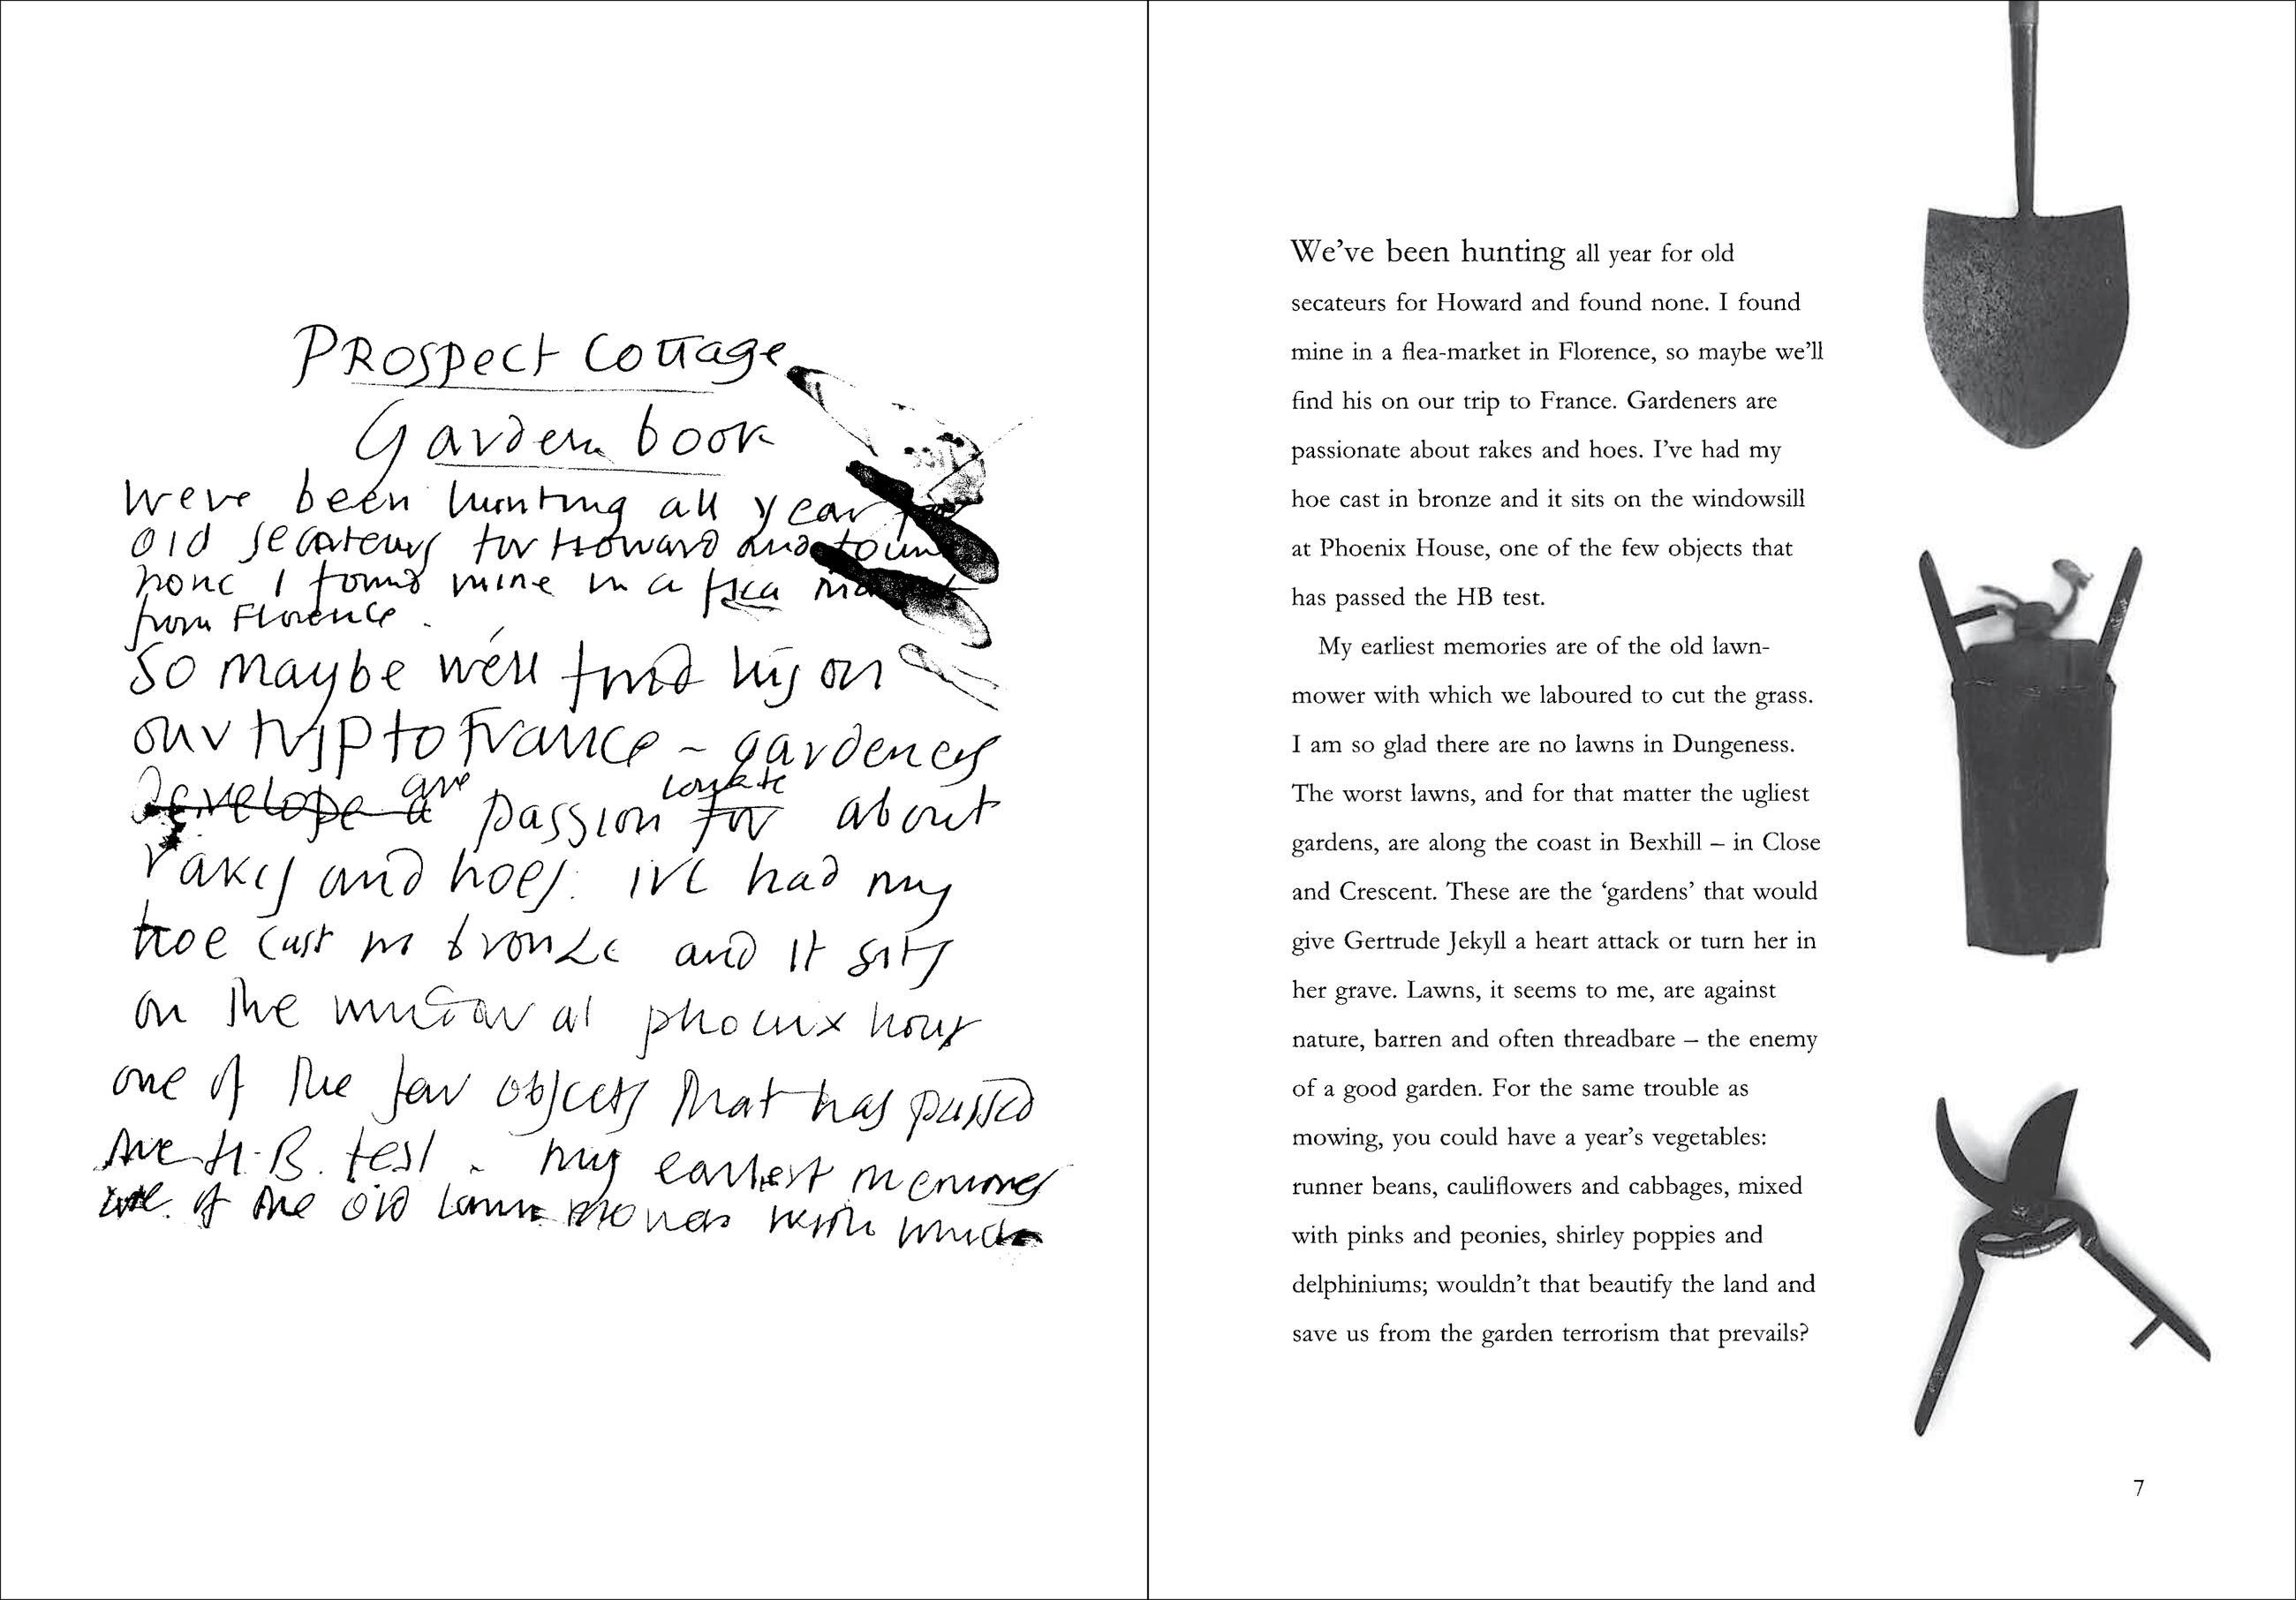 PROspect Cottage
Garden book
Weve been hunting all year for
old secateurs for Howard and found
none I found mine in a flea market
from Florence.
So maybe we'll find his on
our trip to France ~ gardeners
develope a are passion for ionate about
rakes and hoes. IVe had my
hoe cast in bronze and it sits
on the window at phoenix house
one of the few objects that has passed
the H.B. test. my earliest memories
are of the old lawn mower with which
We've been hunting all year for old
secateurs for Howard and found none. I found
mine in a flea-market in Florence, so maybe we'll
find his on our trip to France. Gardeners are
passionate about rakes and hoes. I've had my
hoe cast in bronze and it sits on the windowsill
at Phoenix House, one of the few objects that
has passed the HB test.
My earliest memories are of the old lawn-
mower with which we laboured to cut the grass.
I am so glad there are no lawns in Dungeness.
The worst lawns, and for that matter the ugliest
gardens, are along the coast in Bexhill – in Close
and Crescent. These are the ‘gardens’ that would
give Gertrude Jekyll a heart attack or turn her in
her grave. Lawns, it seems to me, are against
nature, barren and often threadbare – the enemy
of a good garden. For the same trouble as
mowing, you could have a year's vegetables:
runner beans, cauliflowers and cabbages, mixed
with pinks and peonies, shirley poppies and
delphiniums; wouldn't that beautify the land and
save us from the garden terrorism that prevails?
7